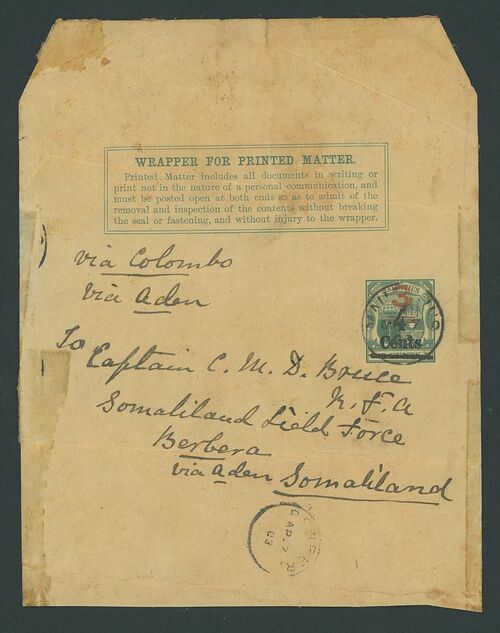 WRAPPER FOR PRINTED MATTER.
Printed Matter includes all documents in writing or
print not in the nature of a personal communication, and
must be posted open at both ends so as to admit of the
removal and inspection of the contents without breaking
the seal or fastening, and without injury to the wrapper.
via Colombo
via Aden
MAURITIUS
3
4
Cents
To Captain C. M. D. Bruce
R. F. A
Somaliland Field Force
Berbera
via Aden Somaliland
AP
03